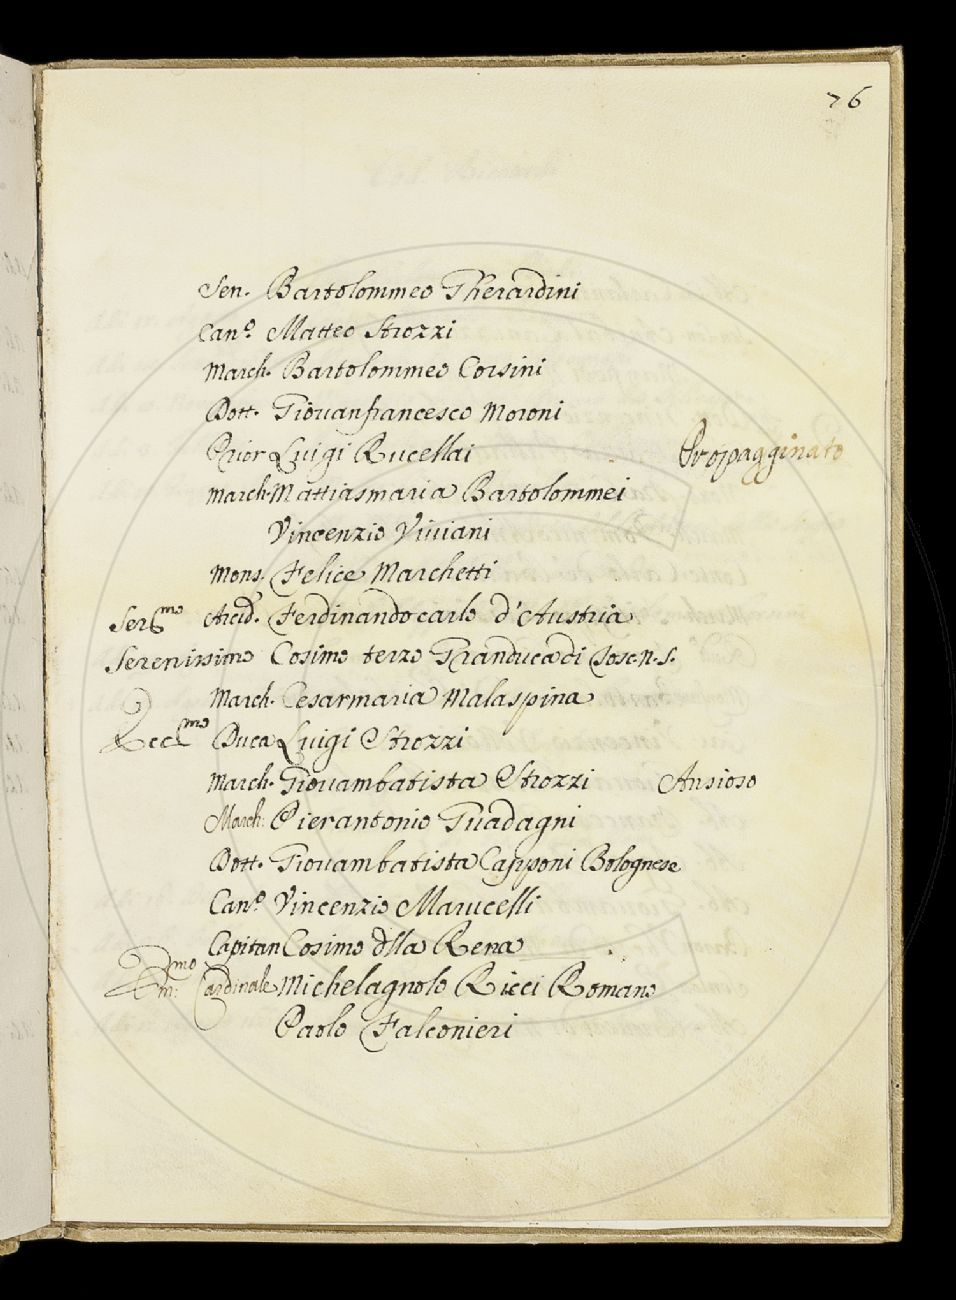 76
Sen. Bartolommeo Gherardini
Can.º Matteo Strozzi
March. Bartolommeo Corsini
Dott. Giouanfrancesco Moroni
Prior Luigi Rucellai Propagginato
March. Mattiasmaria Bartolommei
Vincenzio Viuiani
Mons. Felice Marchetti
Ser.mo Arcid. Ferdinandocarlo d'Austria
Serenissimo Cosimo terzo Granduca di Tosc. N. S.
March. Cesarmaria Malaspina
Ecc.mo Duca Luigi Strozzi
March. Giouambatista Strozzi Ansioso
March: Pierantonio Guadagni
Dott. Giouambatista Capponi Bolognese
Can.º Vincenzio Marucelli
Capitan Cosimo dlla Rena
Em:mo Cardinale Michelagnolo Ricci Romano
Paolo Falconieri